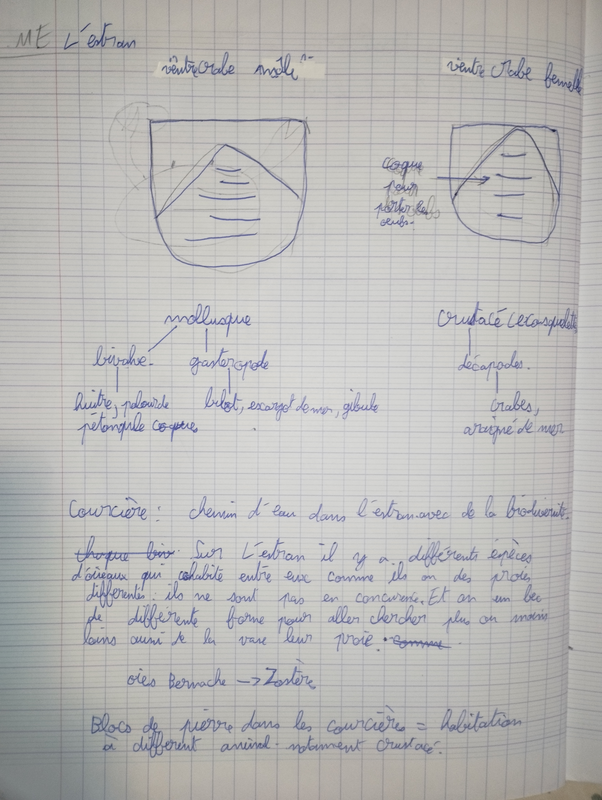 ME L'estran
ventre crabe mâle
ventre crabe femelle
coque
pour
porter les
oeufs.
mollusque
crustacé (exosquelette
bivalve. gasteropode
décapodes.
huitre, palourde
pétongule coque
bilot, escargot de mer, gibule
crabes,
araigné de mer
Courcière : chemin d'eau dans l'estran avec de la biodiversité.
Sur L'estran il y a différents épèces
d'oiseaux qui cohabite entre eux comme ils on des proies
differentes : ils ne sont pas en concurence. Et on un bec
de différente forme pour aller chercher plus ou moins
loins dans la vase leur proie.
oies Bernache -> Zostère
Blocs de pierre dans les courcière = habitation
à différent animal notament crustacé.